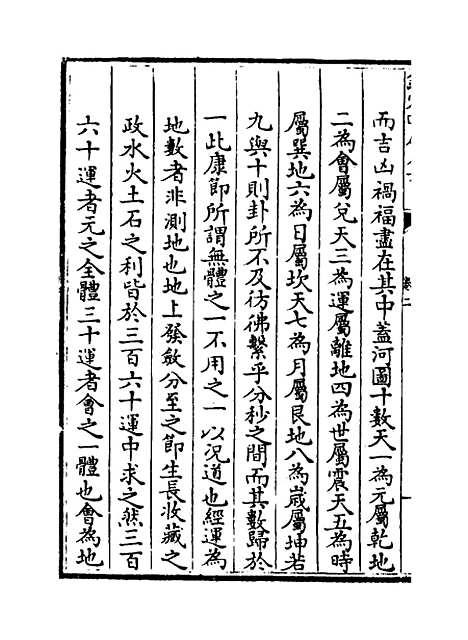 而吉凶禍福盡在其中蓋河圖十數天一為元屬乾地
二為會屬兌天三為運屬離地四為世屬震天五為時
屬巽地六為日屬坎天七為月屬艮地八為歲屬坤若
九與十則卦所不及彷彿繫乎分秒之間而其數歸於
一此康節所謂無體之一不用之一以況道也經運為
地數者非測地也地上發斂分至之節生長收藏之
政水火土石之利皆於三百六十運中求之然三百
六十運者元之全體三十運者會之一體也會為地